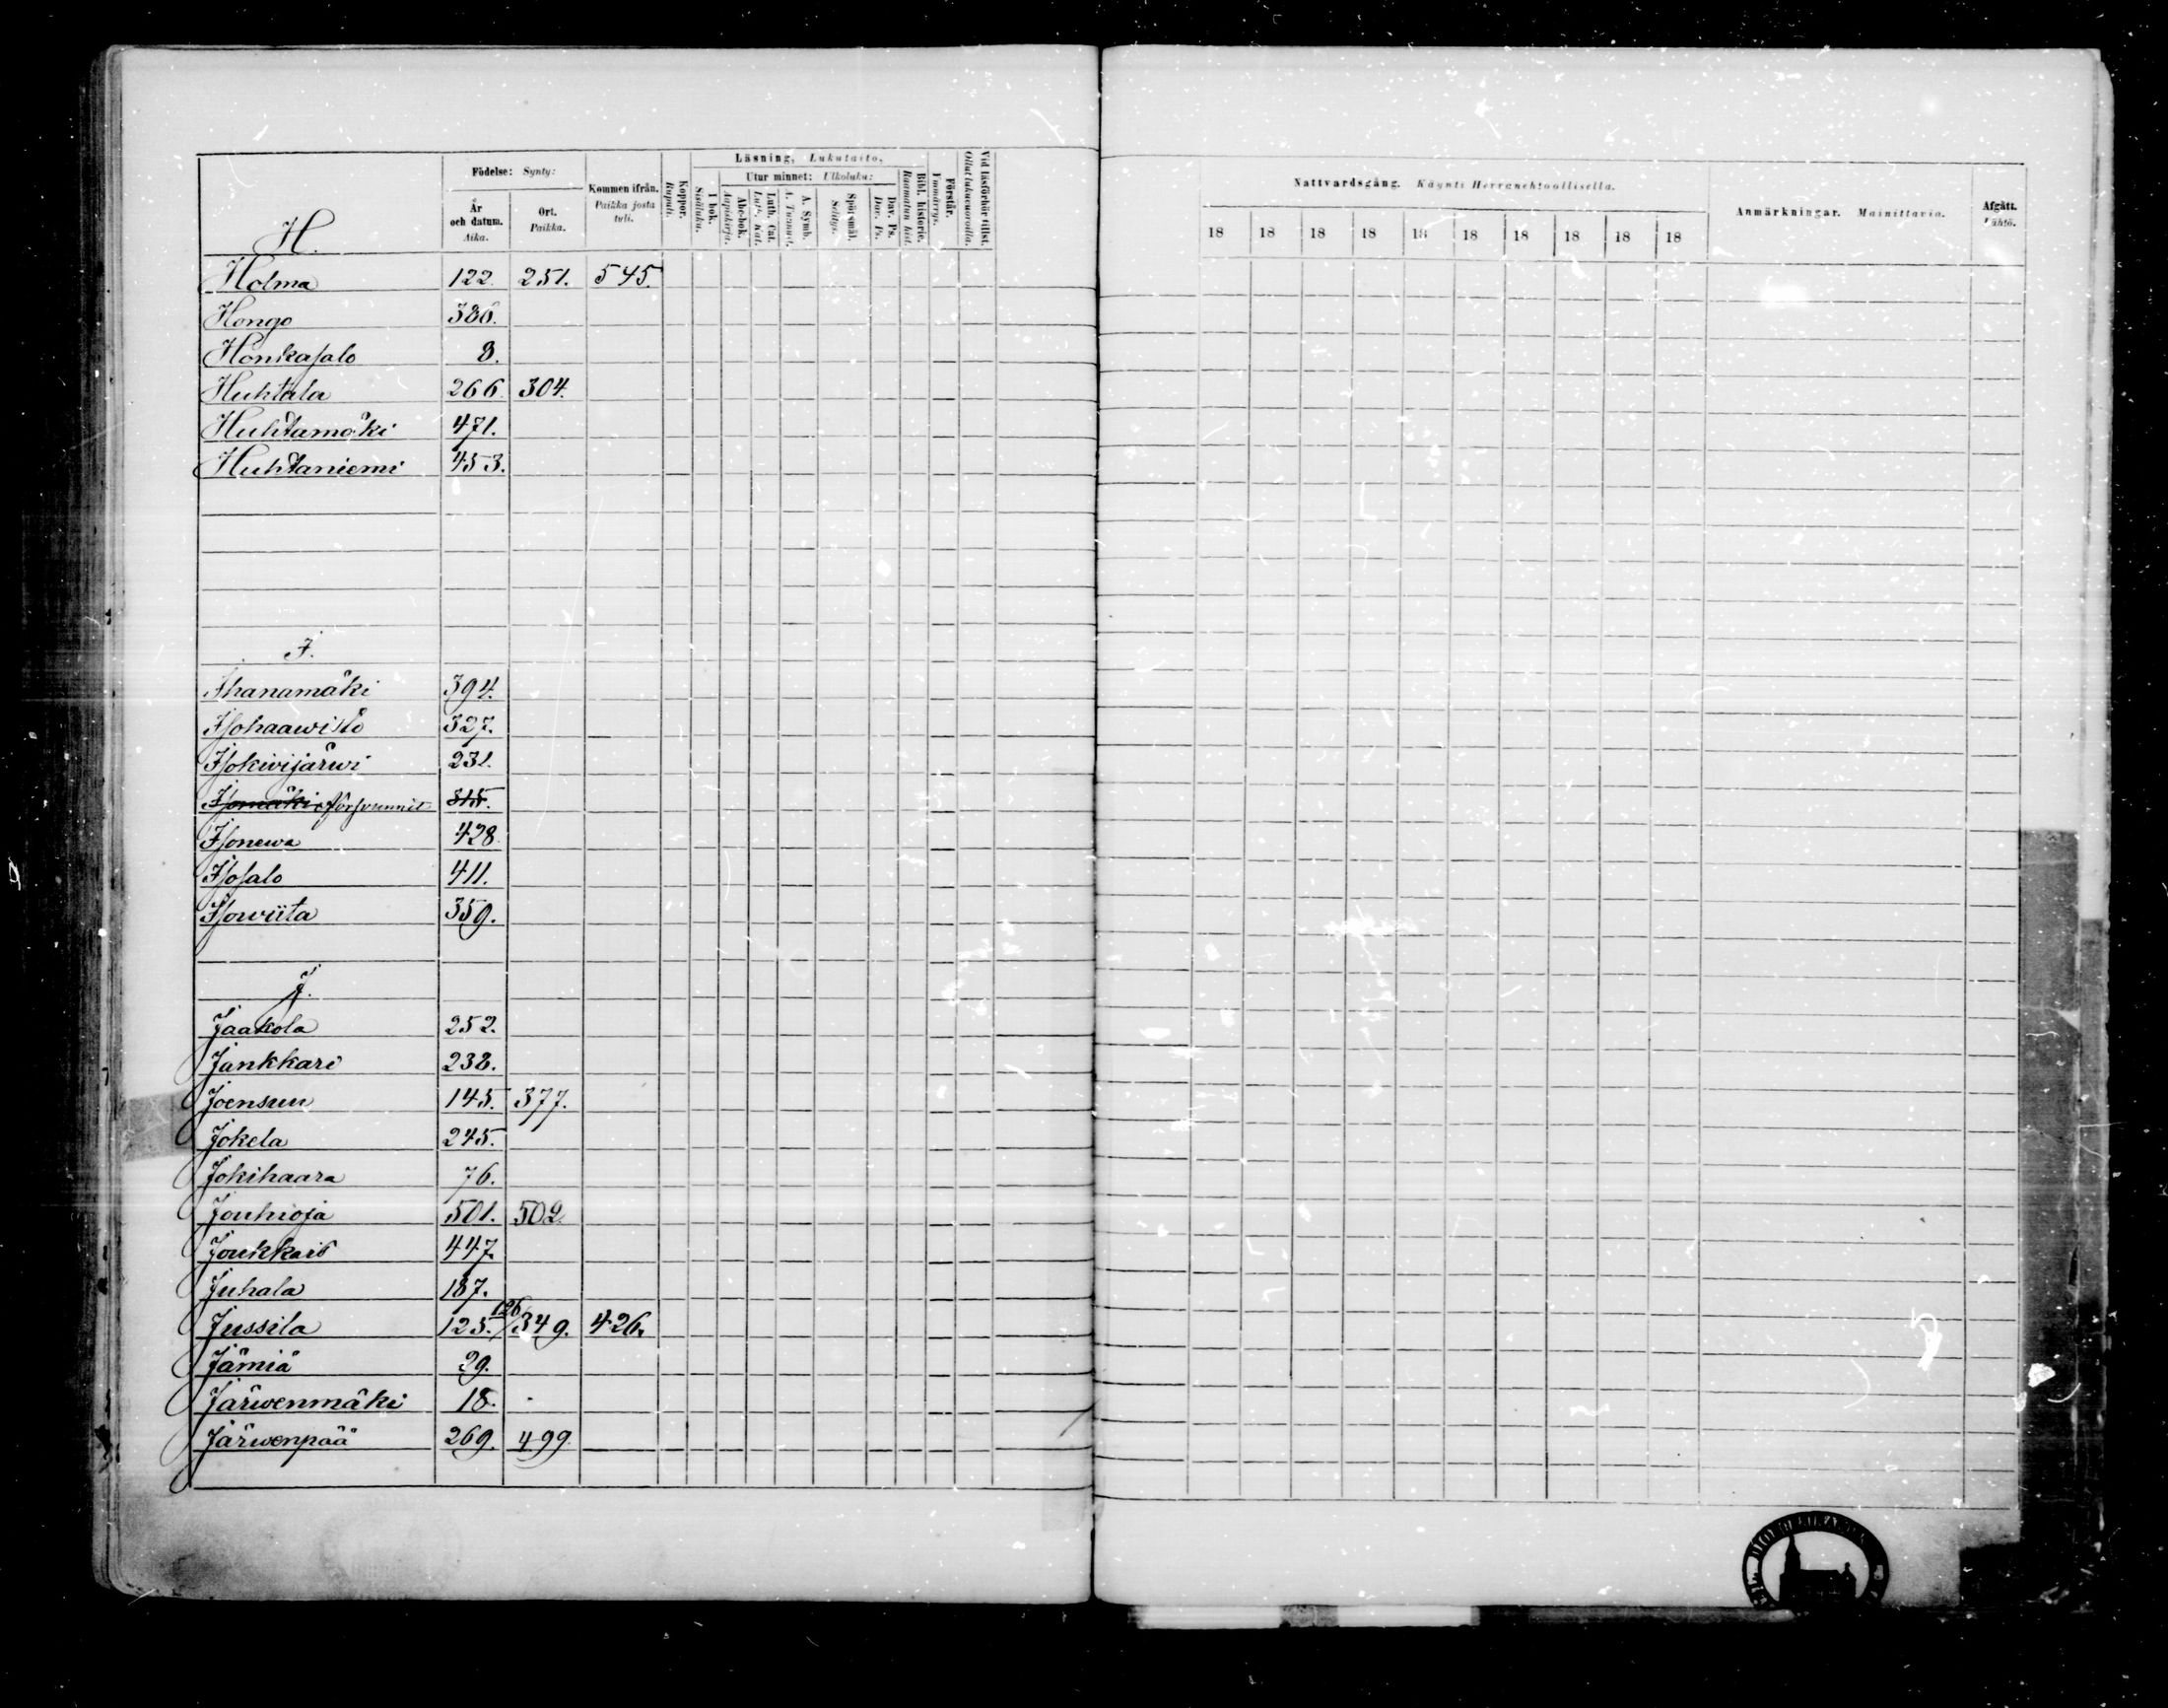 Födelse: Synty:
År och datum. Aika.
Ort. Paikka.
Kommen ifrån. Paikka josta tuli.
Koppor. Rupuli.
Läsning, Lukutaito.
I bok. Sisäluku.
Utur minnet: Ulkoluku:
Abc-bok. Aapiskirja.
Luth. Cat. Luth. Kat.
A. Symb. A. Tunnust.
Spörsmål. Selitys.
Dav. Ps. Dav. Ps.
Bibl. historie. Raamatun hist.
Förstår. Ymmärrys.
Vid läsförhör tillst. Ollut lukuvuorolla.
Nattvardsgång. Käynti Herranehtoollisella.
18 18 18 18 18 18 18 18 18 18
Anmärkningar. Mainittavia.
Afgått. Lähtö.
H.
Holma 122. 251. 545.
Hongo 386.
Honkasalo 8.
Huhtala 266. 304.
Huhtamäki 471.
Huhtaniemi 453.
I.
Ihanamäki 394.
Isohaawisto 327.
Isokivijärwi 231.
Isomäki försvunnit 315.
Isonewa 428
Isosalo 411.
Isowiita 359.
J.
Jaakola 252.
Jankkari 238.
Joensuu 145. 377.
Jokela 245.
Jokihaara 76.
Jouhioja 501. 502.
Joukkais 447.
Juhala 187.
Jussila 125. 126/349. 426.
Jämiä 29.
Järwenmäki 18.
Järwenpää 269. 499.